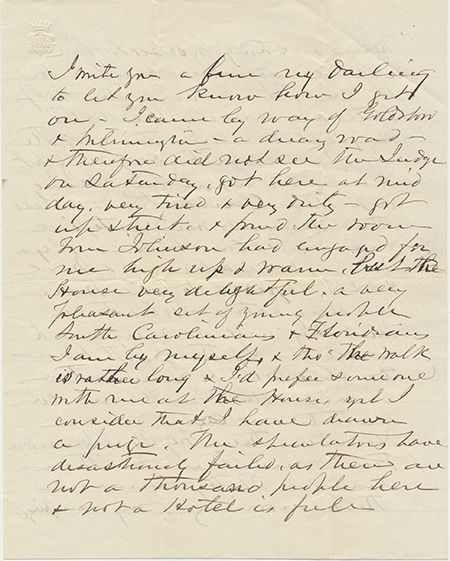 I write you a line my darling
to let you know how I got
on, – I came by way of Goldsboro
& Wilmington – a dreary road –
& therefore did not see the Judge
on Saturday, got here at mid
day, very tired & very dirty – got
up street & found the room
Tom Johnson had engaged for
me high up & warm, but the
House very delightful. a very
pleasant set of young people
South Carolinians & Floridians
I am by myself, & tho' the walk
is rather long & I'd prefer someone
with me at the House, yet I
consider that I have drawn
a prize. The speculators have
disastrously failed, as there are
not a thousand people here
& not a Hotel is full